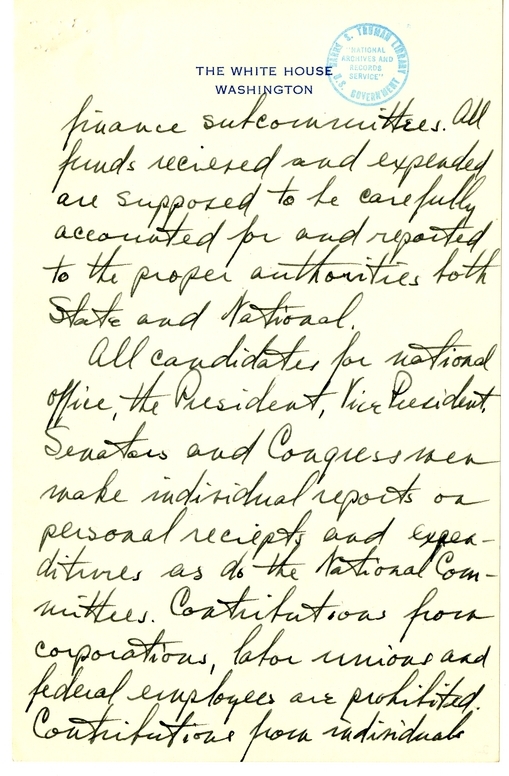 HARRY S. TRUMAN LIBRARY
"NATIONAL
ARCHIVES AND
RECORDS
SERVICE"
U.S. GOVERNMENT
THE WHITE HOUSE
WASHINGTON
finance subcommittees. All
funds recieved and expended
are supposed to be carefully
accounted for and reported
to the proper authorities both
State and National.
All candidates for national
office, the President, Vice President,
Senators and Congressmen
make individual reports on
personal reciepts and expen-
ditures as do the National Com-
mittees. Contributions from
corporations, labor unions and
federal employees are prohibited.
Contributions from individuals